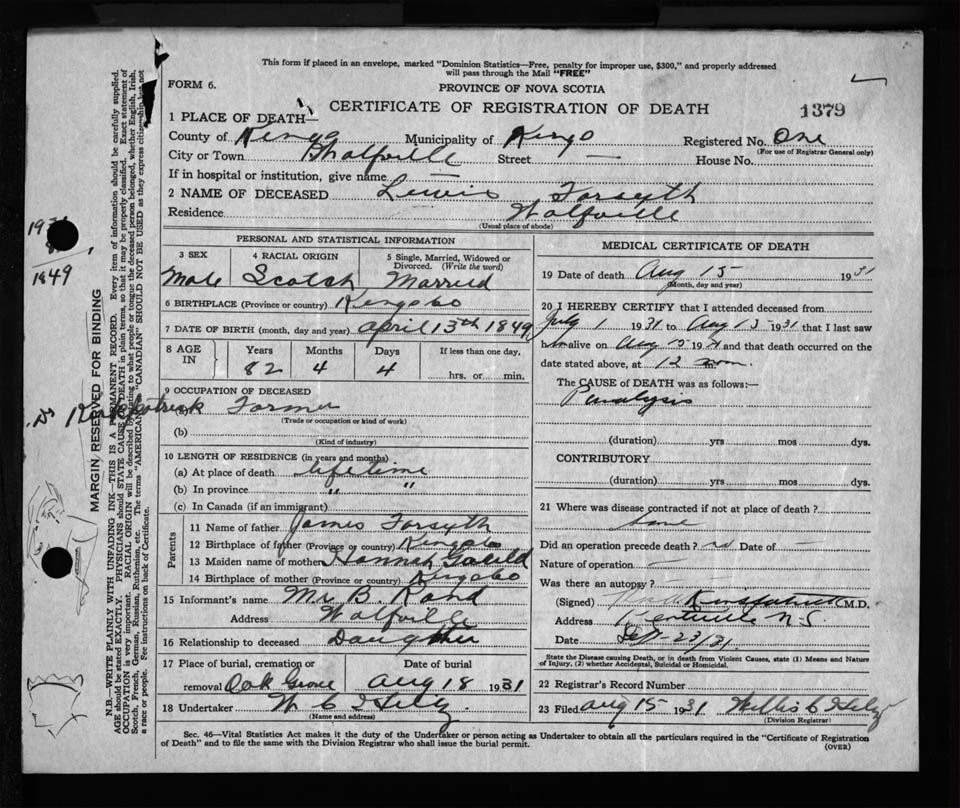 This form if placed in an envelope, marked "Dominion Statistics—Free, penalty for improper use, $300," and properly addressed
will pass through the Mail "FREE"
FORM 6.
PROVINCE OF NOVA SCOTIA
CERTIFICATE OF REGISTRATION OF DEATH
1379
1 PLACE OF DEATH—
County of Kings Municipality of Kings Registered No. One
(For use of Registrar General only)
City or Town Wolfville Street — House No.
If in hospital or institution, give name
2 NAME OF DECEASED Lewis Forsyth
Residence Wolfville
(Usual place of abode)
PERSONAL AND STATISTICAL INFORMATION
3 SEX 4 RACIAL ORIGIN 5 Single, Married, Widowed or Divorced. (Write the word)
Male Scotch Married
6 BIRTHPLACE (Province or country) Kings Co
7 DATE OF BIRTH (month, day and year) April 13th 1849
8 AGE IN Years Months Days If less than one day,
82 4 4 hrs. or min.
9 OCCUPATION OF DECEASED
Farmer
(Trade or occupation or kind of work)
(b)
(Kind of industry)
10 LENGTH OF RESIDENCE (in years and months)
(a) At place of death lifetime
(b) In province " "
(c) In Canada (if an immigrant)
Parents
11 Name of father James Forsyth
12 Birthplace of father (Province or country) Kings Co
13 Maiden name of mother Hannah
14 Birthplace of mother (Province or country) Kings Co
15 Informant's name Mrs B. Rand
Address Wolfville
16 Relationship to deceased Daughter
17 Place of burial, cremation or Date of burial
removal Oak Grove Aug 18 1931
18 Undertaker W C
(Name and address)
MEDICAL CERTIFICATE OF DEATH
19 Date of death Aug 15 1931
(Month, day and year)
20 I HEREBY CERTIFY that I attended deceased from
July 1 1931 to Aug 15 1931 that I last saw
him alive on Aug 15 1931 and that death occurred on the
date stated above, at 12 noon m.
The CAUSE OF DEATH was as follows:—
Paralysis
(duration) yrs mos dys.
CONTRIBUTORY
(duration) yrs mos dys.
21 Where was disease contracted if not at place of death?
Same
Did an operation precede death? no Date of —
Nature of operation —
Was there an autopsy? —
(Signed) Kirkpatrick M.D.
Address Kentville N.S.
Date Sept 23/31
State the Disease causing Death, or in death from Violent Causes, state (1) Means and Nature
of Injury, (2) whether Accidental, Suicidal or Homicidal.
22 Registrar's Record Number
23 Filed Aug 15 1931 Willis C
(Division Registrar)
Sec. 46—Vital Statistics Act makes it the duty of the Undertaker or person acting as Undertaker to obtain all the particulars required in the "Certificate of Registration
of Death" and to file the same with the Division Registrar who shall issue the burial permit. (OVER)
1849
Dr Kirkpatrick
MARGIN RESERVED FOR BINDING
N.B.—WRITE PLAINLY WITH UNFADING INK—THIS IS A PERMANENT RECORD. Every item of information should be carefully supplied.
AGE should be stated EXACTLY. PHYSICIANS should STATE CAUSE OF DEATH in plain terms, so that it may be properly classified. Exact statement of
OCCUPATION is very important. RACIAL ORIGIN will be described by stating to what people or tongue the deceased person belonged, whether English, Irish,
Scotch, French, German, Russian, Ruthenian, etc. The terms "AMERICAN" or "CANADIAN" SHOULD NOT BE USED as they express citizenship but not
a race or people. See instructions on back of Certificate.